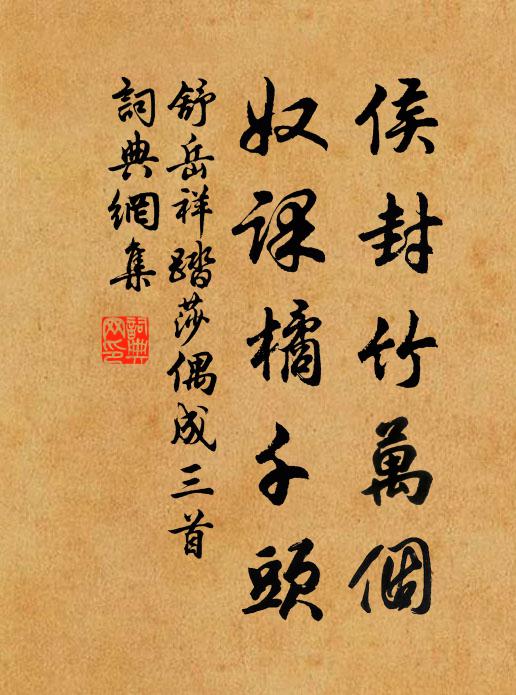 侯封竹萬個
奴課橘千頭
舒岳祥踏莎偶成三首
詞典網集
詞典
网印